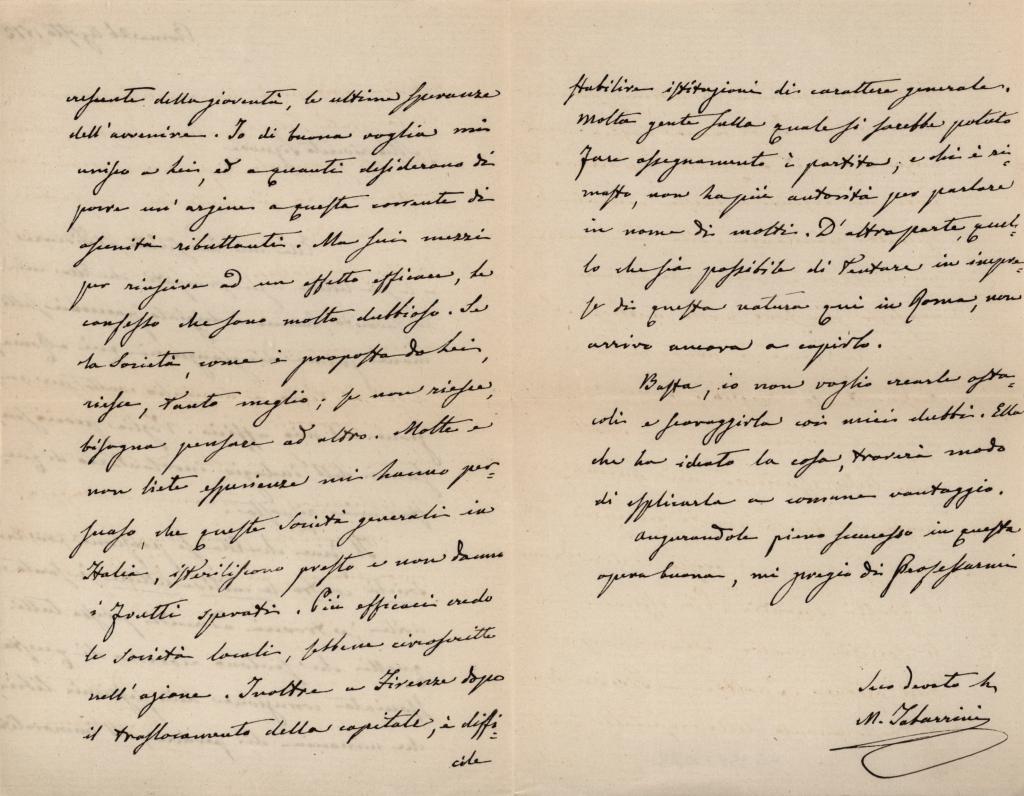 crescente della gioventù, le ultime speranze
dell'avvenire. Io di buona voglia mi
unisco a Lei, ed a quanti desiderano di
porre un'argine a questa corrente di
oscenità ributtanti. Ma sui mezzi
per riuscire ad un effetto efficace, Le
confesso che sono molto dubbioso. Se
la Società, come è proposta da Lei,
riesce, tanto meglio; se non riesce,
bisogna pensare ad altro. Molte e
non liete esperienze mi hanno per=
suaso, che queste Società generali in
Italia, isteriliscono presto e non danno
i frutti sperati. Più efficaci credo
le Società locali, sebbene circoscritte
nell'azione. Inoltre a Firenze dopo
il traslocamento della capitale, è diffi=
cile
stabilire istituzioni di carattere generale.
Molta gente sulla quale si sarebbe potuto
fare assegnamento è partita; e chi è ri=
masto, non ha più autorità per parlare
in nome di molti. D'altra parte, quel=
lo che sia possibile di tentare in impre=
se di questa natura qui in Roma, non
arrivo ancora a capirlo.
Basta, io non voglio crearle osta=
coli e scoraggirla coi miei dubbi. Ella
che ha ideato la cosa, troverà modo
di esplicarla a comune vantaggio.
Augurandole pieno successo in questa
opera buona, mi pregio di Professarmi
Suo Devoto
M. Tabarrini